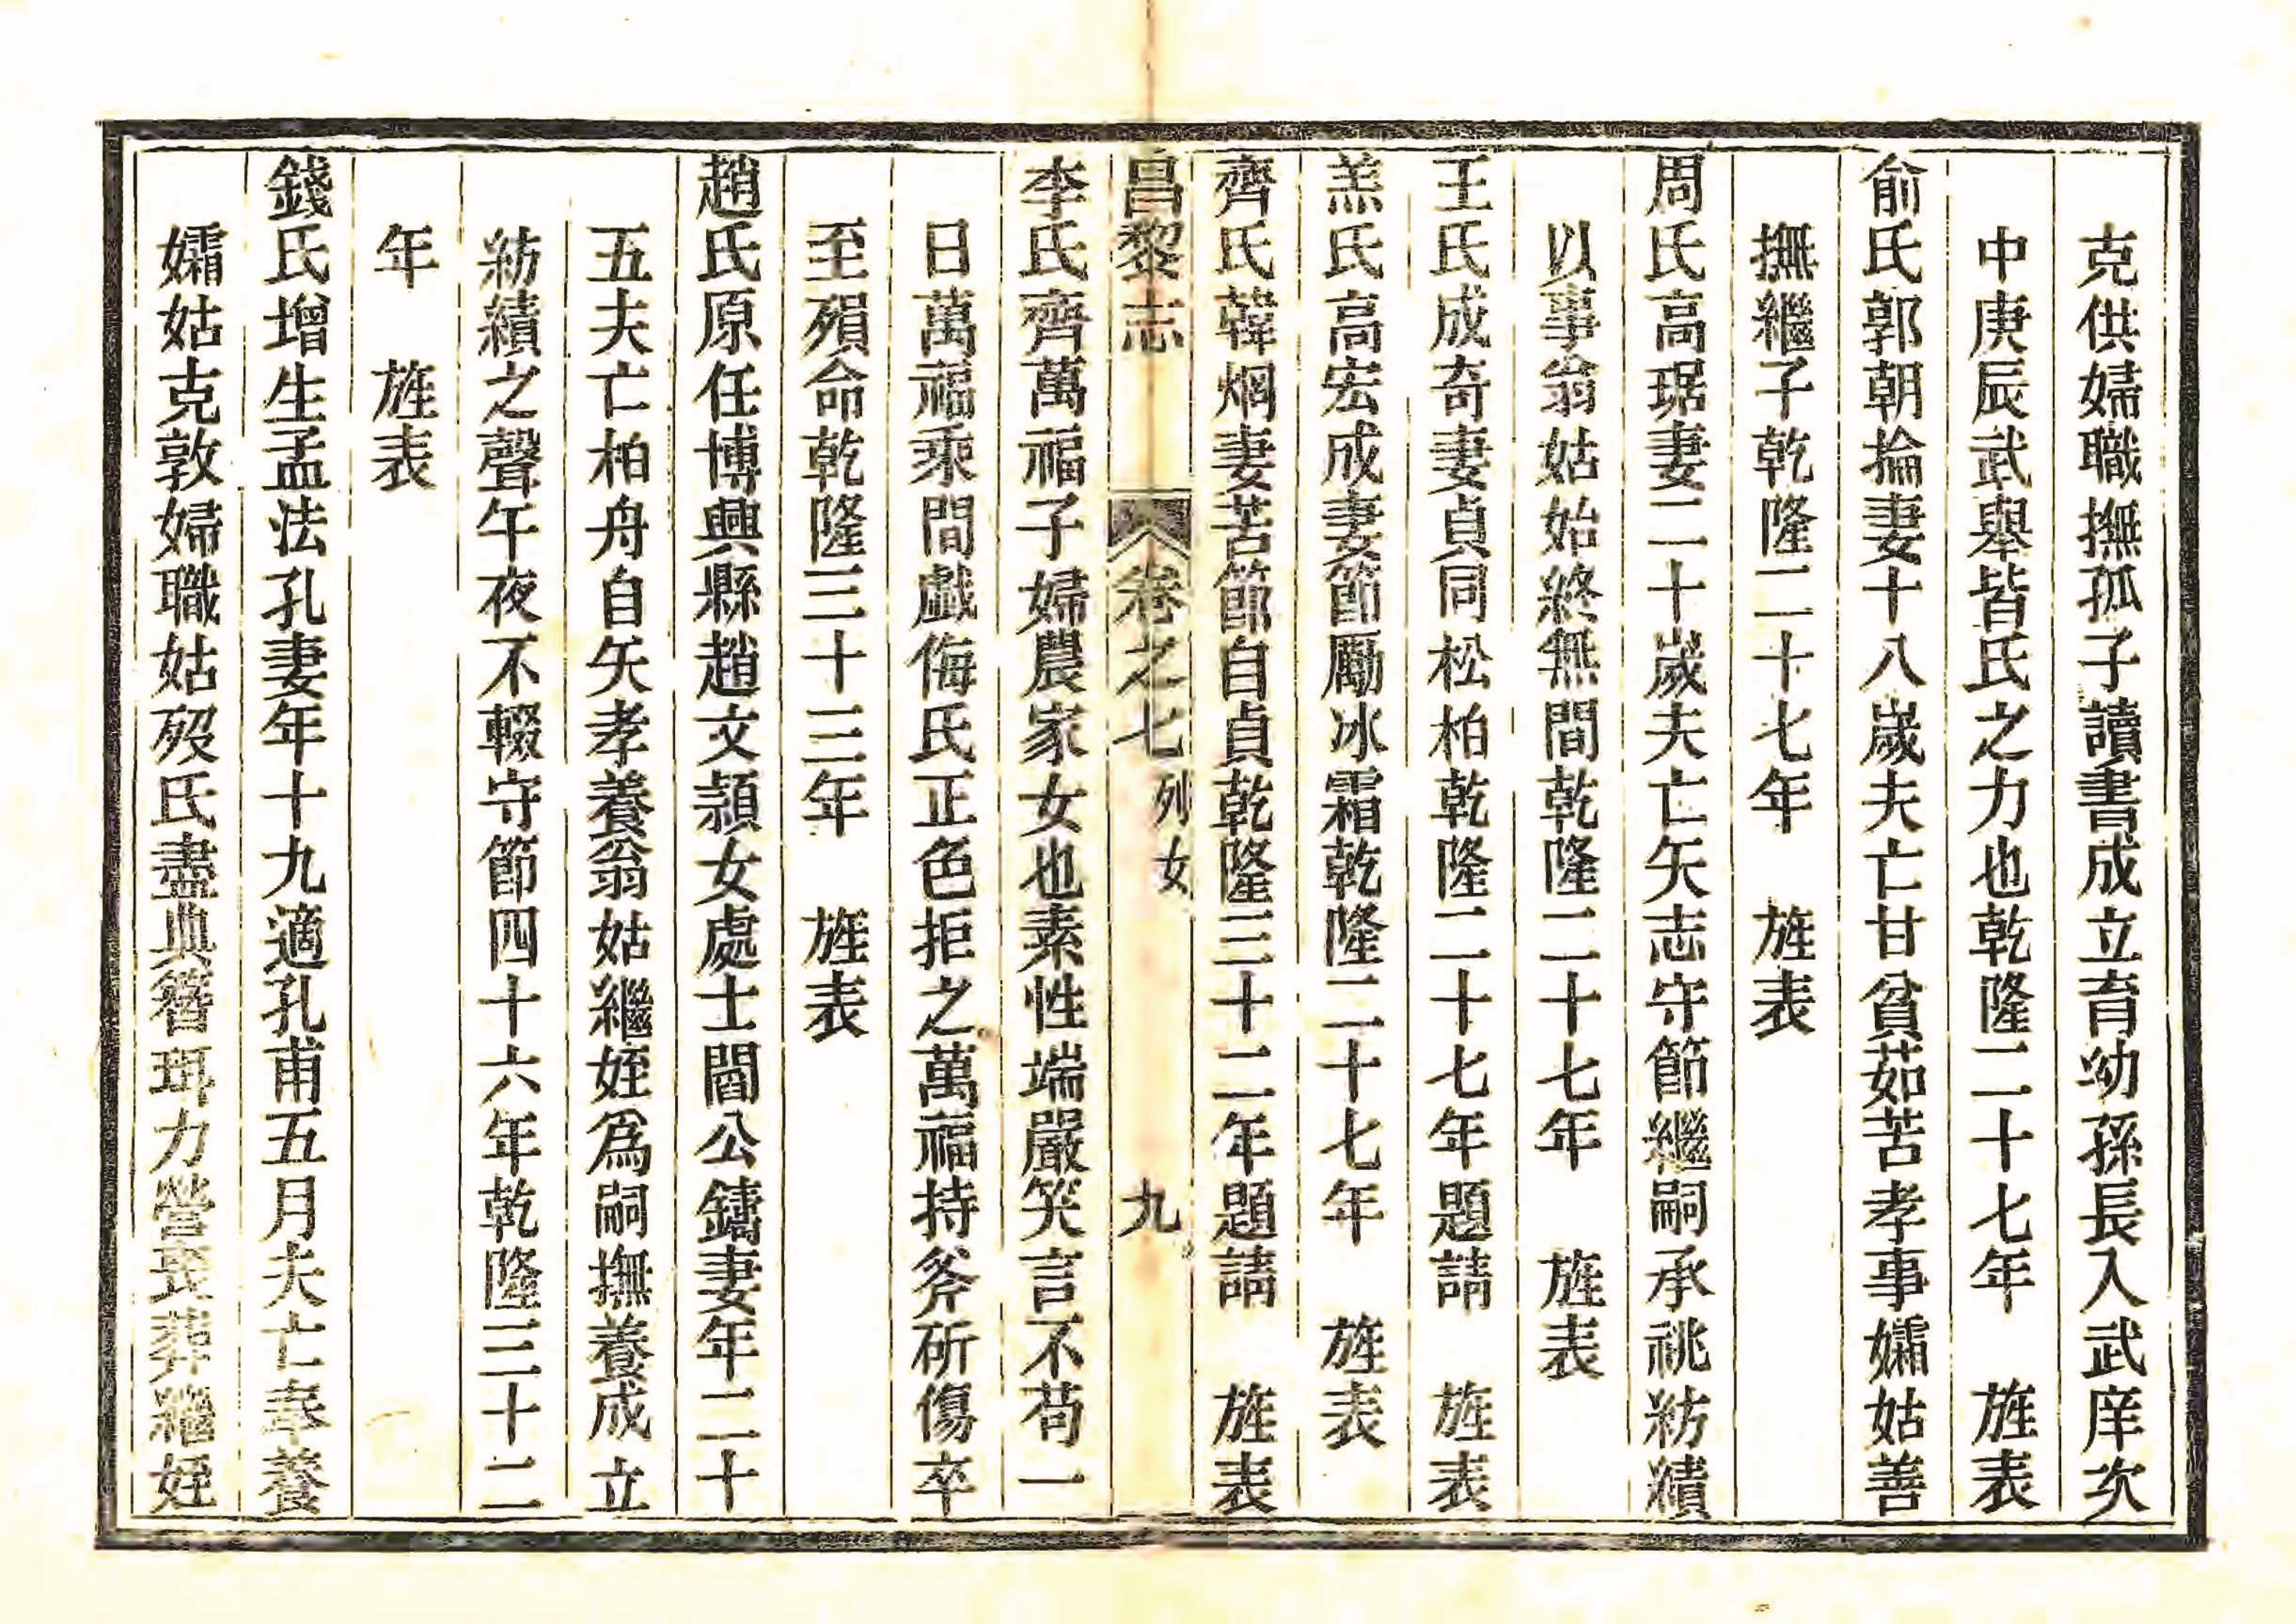 克供婦職撫孤子讀書成立育幼孫長入武庠次
中庚辰武舉皆氏之力也乾隆二十七年　旌表
俞氏郭朝掄妻十八歲夫亡甘貧茹苦孝事孀姑善
撫繼子乾隆二十七年　旌表
周氏高琚妻二十歲夫亡矢志守節繼嗣承祧紡績
以事翁姑始終無間乾隆二十七年　旌表
王氏成奇妻貞同松柏乾隆二十七年題請　旌表
羔氏高宏成妻節勵冰霜乾隆二十七年　旌表
齊氏韓烱妻苦節自貞乾隆三十二年題請　旌表
昌黎志　卷之七　列女　九
李氏齊萬福子婦農家女也素性端嚴笑言不苟一
日萬福乘間戲侮氏正色拒之萬福持斧斫傷卒
至殞命乾隆三十三年　旌表
趙氏原任博興縣趙文頴女處士閻公鑄妻年二十
五夫亡柏舟自矢孝養翁姑繼姪爲嗣撫養成立
紡績之聲午夜不輟守節四十六年乾隆三十二
年　旌表
錢氏增生孟法孔妻年十九適孔甫五月夫亡奉養
孀姑克敦婦職姑歿氏盡典簪珥力營喪葬繼姪